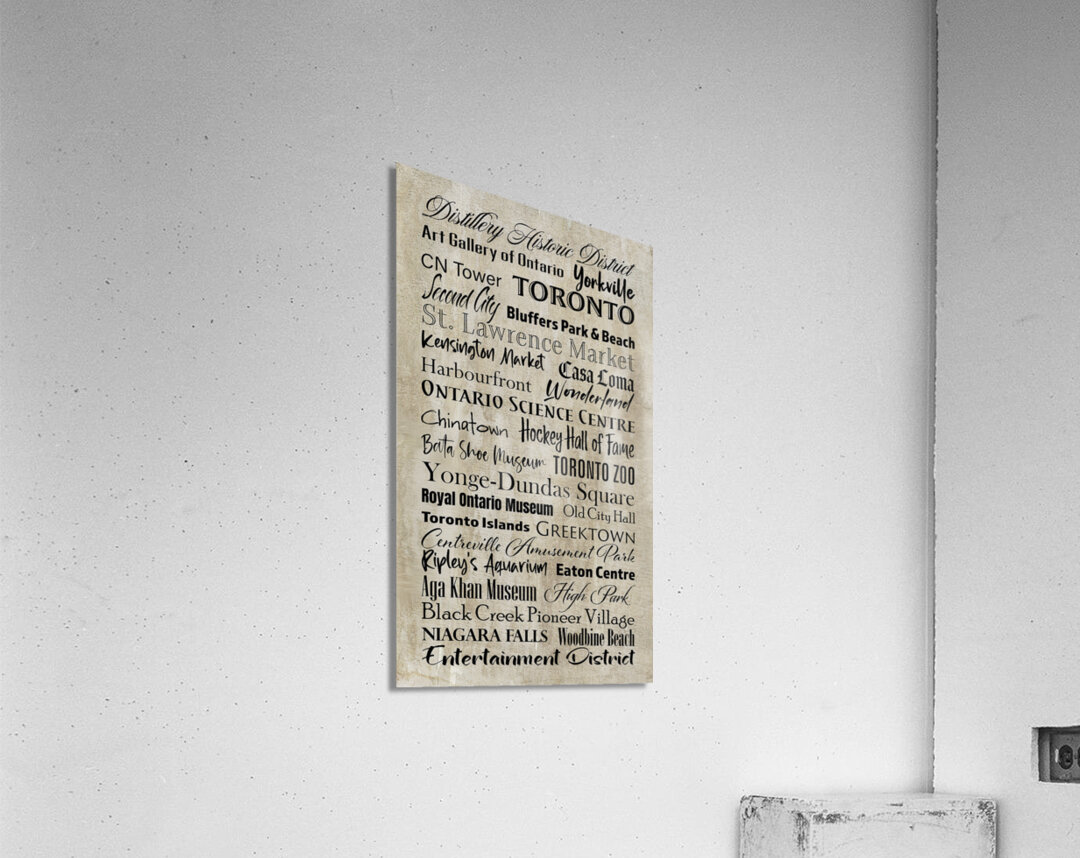 Distillery Historic District
Art Gallery of Ontario Yorkville
CN Tower TORONTO
Second City Bluffers Park & Beach
St. Lawrence Market
Kensington Market Casa Loma
Harbourfront Wonderland
ONTARIO SCIENCE CENTRE
Chinatown Hockey Hall of Fame
Bata Shoe Museum TORONTO ZOO
Yonge-Dundas Square
Royal Ontario Museum Old City Hall
Toronto Islands GREEKTOWN
Centreville Amusement Park
Ripley's Aquarium Eaton Centre
Aga Khan Museum High Park
Black Creek Pioneer Village
NIAGARA FALLS Woodbine Beach
Entertainment District